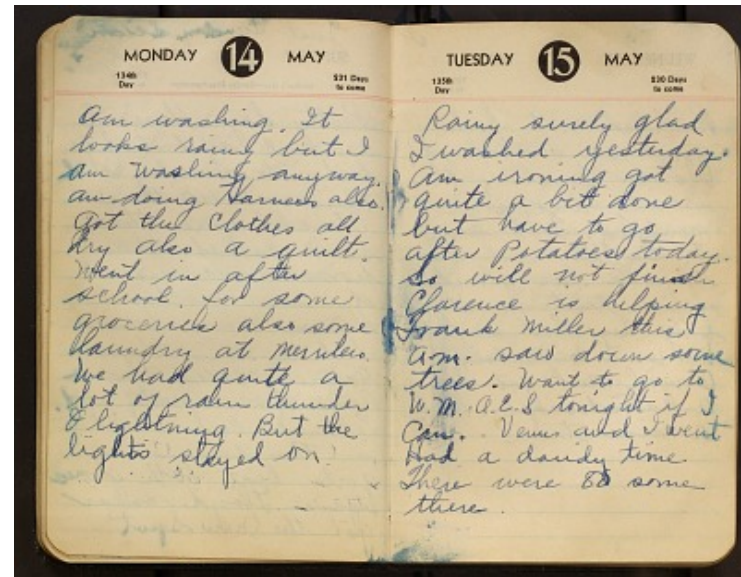 MONDAY 14 MAY
134th Day
231 Days to come
Am washing. It
looks rainy but I
am washing anyway.
am doing Harness also.
Got the clothes all
dry also a quilt.
Went in after
school for some
groceries also some
laundry at
We had quite a
lot of rain thunder
& lightning. But the
lights stayed on.
TUESDAY 15 MAY
135th Day
230 Days to come
Rainy surely glad
I washed yesterday.
Am ironing got
quite a bit done
but have to go
after Potatoes today.
So will not finish
Clarence is helping
Frank Miller this
a.m. saw down some
trees. Want to go to
W.M.A.C.S tonight if I
Can. Venus and I went
Had a dandy time
There were 80 some
there.